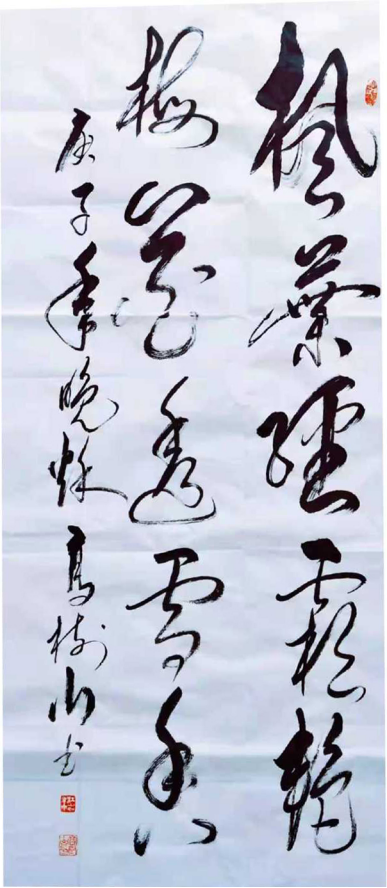 楓葉經霜艷
梅花透雪香
庚子年晚秋高樹小书